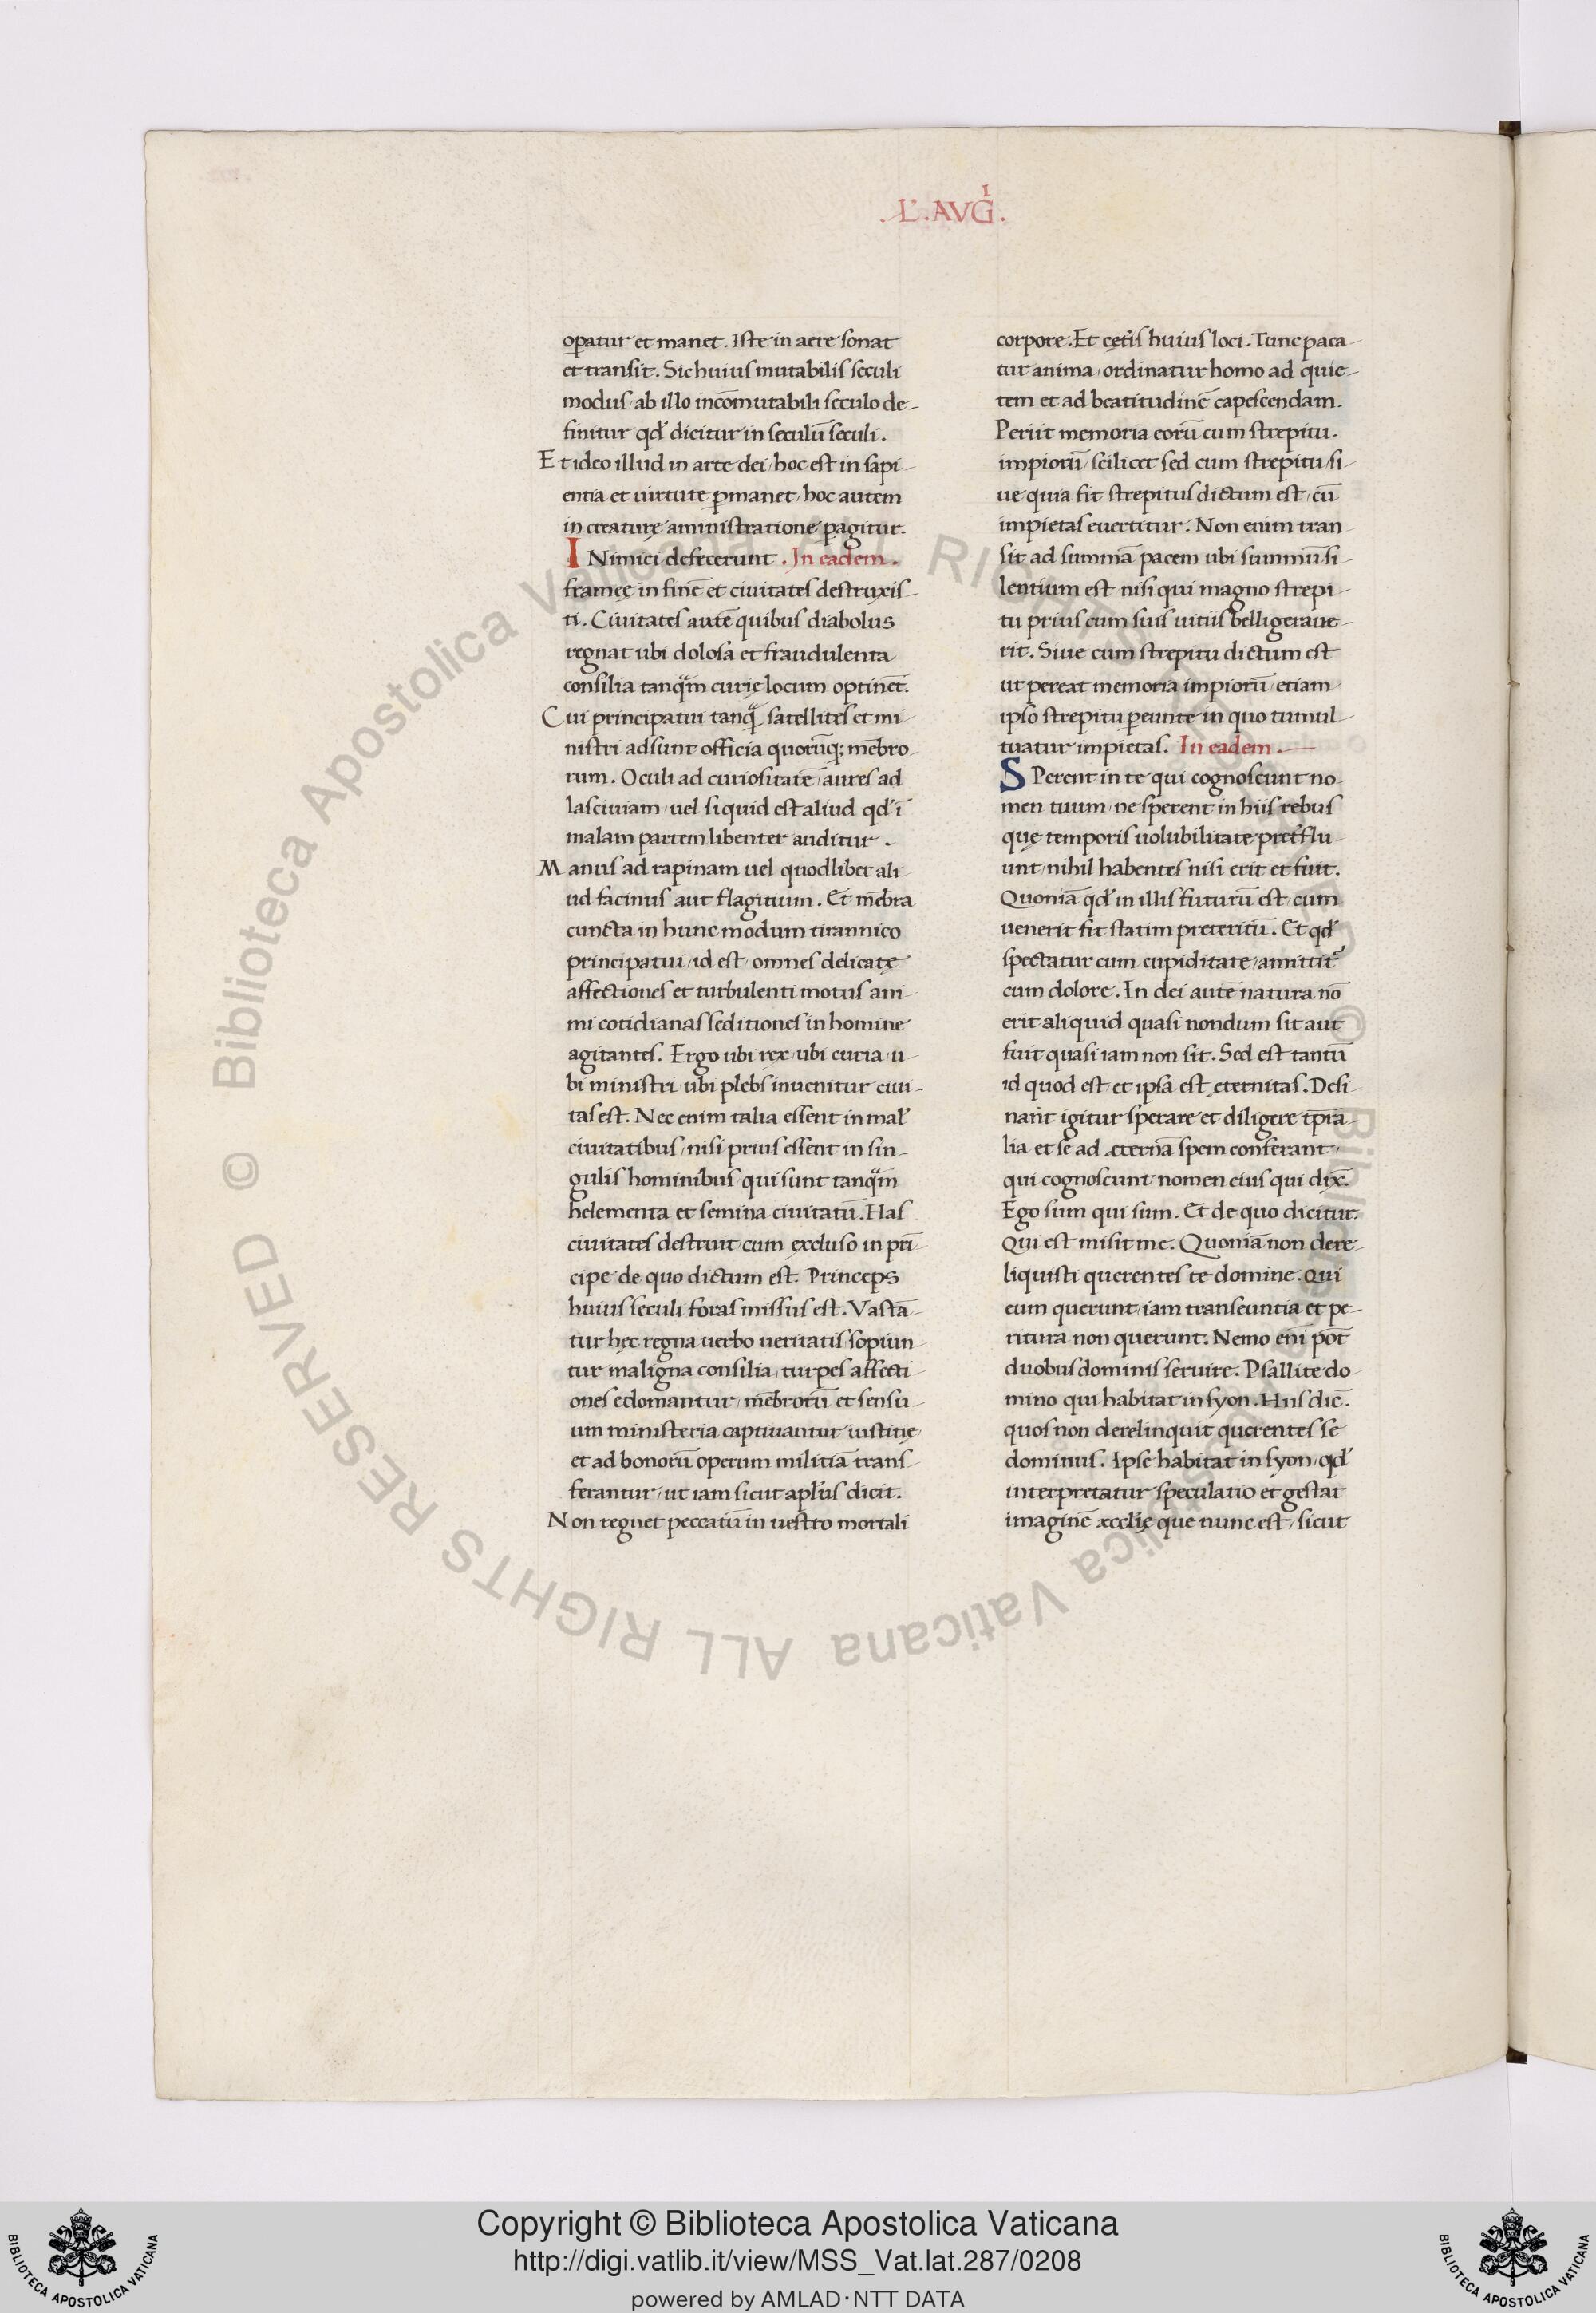 .L'.AVG̅I.
op̱atur et manet. Iste in aere sonat
et transit. Sic huius mutabilis seculi
modus, ab illo incōmutabili seculo de-
finitur qd' dicitur in seculū seculi.
Et ideo illud in arte dei, hoc est in sapi-
entia et uirtute ꝑmanet, hoc autem
in creaturę aministratione ꝑagitur.
INimici defecerunt. In eadem.
framee in finē et ciuitates destruxis-
ti. Ciuitates autē quibus diabolus
regnat ubi dolosa et fraudulenta
consilia tanq̄m curię locum optinēt.
Cui principatui tanq̄ satellites et mi-
nistri adsunt officia quorūq; mēbro-
rum. Oculi ad curiositatē, aures ad
lasciuiam, uel siquid est aliud qd' ī
malam partem libenter auditur.
Manus ad rapinam uel quodlibet ali-
ud facinus aut flagitium. Et mēbra
cuncta in hunc modum tirannico
principatui, id est, omnes delicatę
affectiones et turbulenti motus ani-
mi cotidianas seditiones in homine
agitantes. Ergo ubi rex, ubi curia, u-
bi ministri ubi plebs inuenitur ciui-
tas est. Nec enim talia essent in mal'
ciuitatibus, nisi prius essent in sin-
gulis hominibus, qui sunt tanq̄m
helementa et semina ciuitatū. Has
ciuitates destruit cum excluso in prī-
cipe de quo dictum est. Princeps
huius seculi foras missus est. Vastā-
tur hęc regna uerbo ueritatis, sopiun-
tur maligna consilia, turpes affecti-
ones edomantur, mēbrorū et sensu-
um ministeria captiuantur iustitię
et ad bonorū operum militiā trans-
ferantur, ut iam sicut apl'us dicit.
Non regnet peccatū in uestro mortali
corpore. Et cęt'is huius loci. Tunc paca-
tur anima, ordinatur homo ad quie-
tem et ad beatitudinē capescendam.
Periit memoria eorū cum strepitu.
impiorū, scilicet sed cum strepitu, si-
ue quia fit strepitus dictum est, cū
impietas euertitur. Non enim tran-
sit ad summā pacem ubi summū si-
lentium est nisi qui magno strepi-
tu prius cum suis uitiis belligeraue-
rit. Siue cum strepitu dictum est
ut pereat memoria impiorū, etiam
ipso strepitu ꝑeunte in quo tumul-
tuatur impietas. In eadem.
SPerent in te qui cognoscunt no-
men tuum, ne sperent in hiis rebus
quę temporis uolubilitate pret'flu-
unt, nihil habentes nisi erit et fuit.
Quoniā qd' in illis futurū est, cum
uenerit fit statim preteritū. Et qd'
spectatur cum cupiditate, amittit'
cum dolore. In dei autē natura nō
erit aliquid quasi nondum sit aut
fuit quasi iam non sit. Sed est tantū
id quod est, et ipsa est ęternitas. Desi-
nan̄t igitur sperare et diligere tp̄ra-
lia et se ad ęternā spem conferant,
qui cognoscunt nomen eius qui dix̄.
Ego sum qui sum. Et de quo dicitur.
Qui est misit me. Quoniā non dere-
liquisti querentes te domine. Qui
eum querunt, iam transeuntia et pe-
ritura non querunt. Nemo eni̅ pot̄
duobus dominis seruire. Psallite do-
mino qui habitat in syon. Hiis dic̄.
quos non derelinquit querentes se
dominus. Ipse habitat in syon, qd'
interpretatur speculatio et gestat
imaginē ęcclię que nunc est, sicut
Copyright © Biblioteca Apostolica Vaticana
http://digi.vatlib.it/view/MSS_Vat.lat.287/0208
powered by AMLAD·NTT DATA